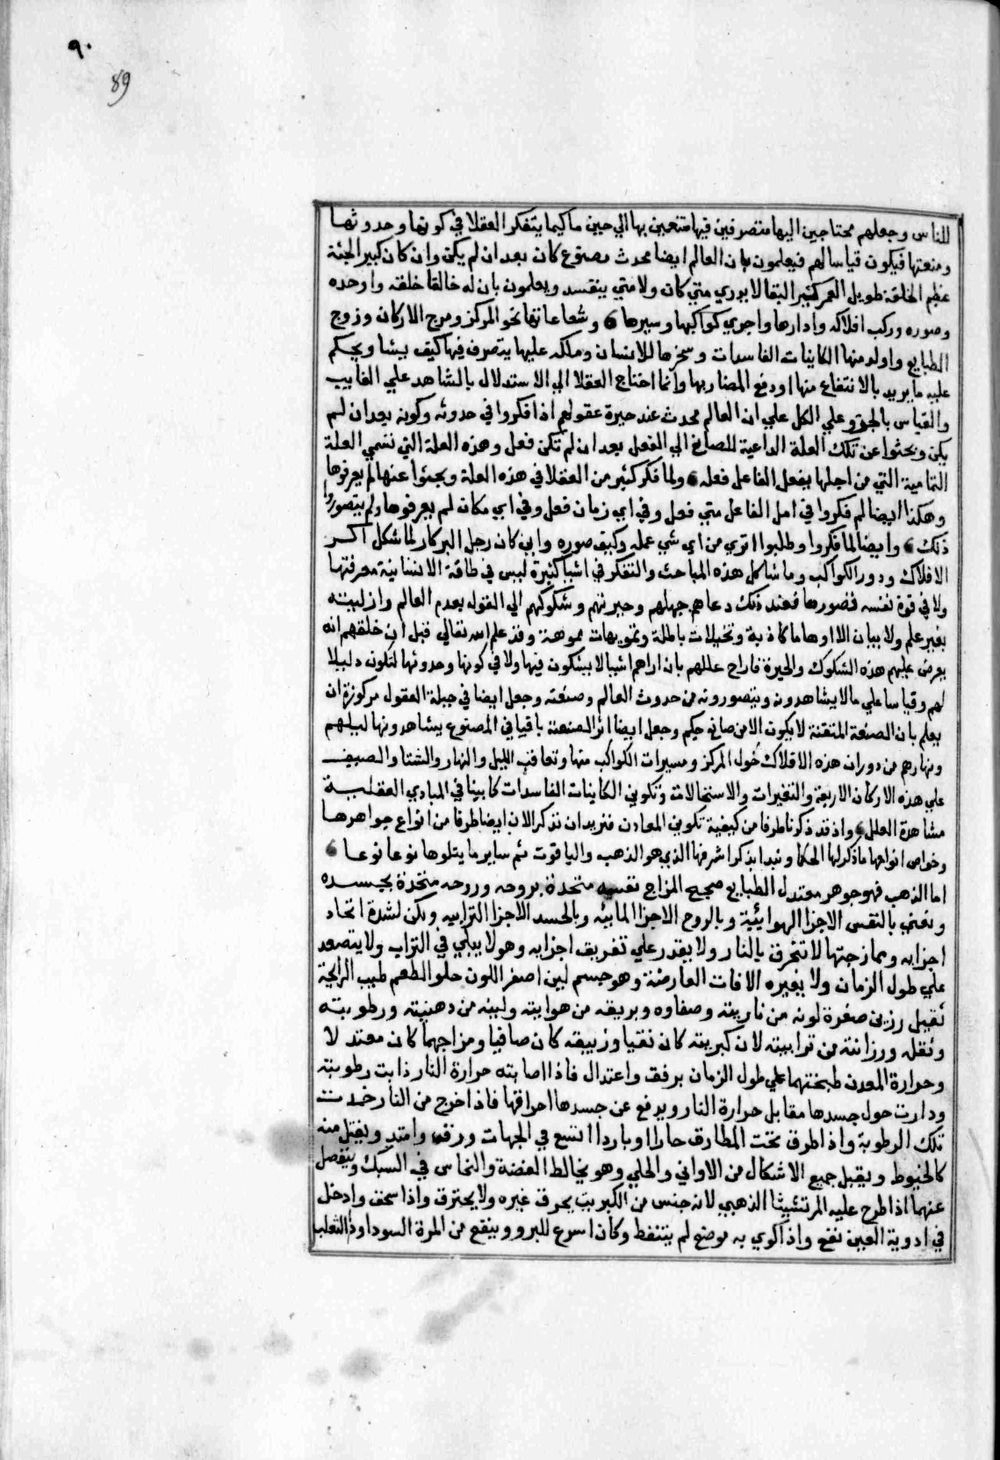 ٩٠
89
للناس وجعلهم محتاجين اليها متصرفين فيها متمتعين بها الي حين ما كيما يتفكر العقلا في كونها وحدوثها
ومنعتها فيكون قياسا لهم فيعلمون بان العالم ايضا محدث مصنوع كان بعد ان لم يكن وان كان كبير الجثة
عظيم الخلقة طويل العمر كثير البقا لا يدري متي كان ولا متي ينفسد ويعلمون بان له خالقا خلقه واوجده
وصوره وركب افلاكه وادارها واجري كواكبها وسيرها وشعاعاتها نحو المركز ومزج الاركان وزوج
الطبايع واولد منها الكاينات الفاسدات وسخرها للانسان وملكه عليها يتصرف فيها كيف يشا ويحكم
عليه ما يريد بالانتفاع منها او دفع المضار بها وانما احتاج العقلا الي الاستدلال بالشاهد علي الغايب
والقياس بالجزو علي الكل علي ان العالم محدث عند حيرة عقولهم اذا فكروا في حدوثه وكونه بعد ان لم
يكن وبحثوا عن تلك العلة الداعية للصانع الي الفعل بعد ان لم تكن فعل وهذه العلة التي تسمي العلة
التمامية التي من اجلها يفعل الفاعل فعله ولما فكر كثير من العقلا في هذه العلة وبحثوا عنها لم يعرفوها
وهكذا ايضا لم فكروا في امل الفاعل متي فعل وفي اي زمان فعل وفي اي مكان لم يعرفوها ولم يتصوروا
ذلك وايضا لما فكروا وطلبوا اتري من اي شي عمله وكيف صوره واين كان رجل البركار لما شكل اكر
الافلاك ودور الكواكب وما شاكل هذه المباحث والتفكر في اشيا كثيرة ليس في طاقة الانسانية معرفتها
ولا في قوة نفسه قصورها فعند ذلك دعاهم جهلهم وحيرتهم وشكوكهم الي القول بعدم العالم وازليته
بغير علم ولا بيان الا اوهاما كاذبة وتخيلات باطلة وتمويهات مموهة وقد علم الله تعالي قبل ان خلقهم انه
يعرض عليهم هذه الشكوك والحيرة فازاح عللهم بان اراهم اشيا لا يشكون فيها ولا في كونها وحدوثها لتكون دليلا
لهم وقياسا علي ما لا يشاهدون ويتصورونه من حدوث العالم وصنعته وجعل ايضا في جبلة العقول مركوزة ان
يعلم بان الصنعة المتقنة لا يكون الا من صانع حكيم وجعل ايضا اثر الصنعة باقيا في المصنوع يشاهدونها ليلهم
ونهارهم من دوران هذه الافلاك حول المركز ومسيرات الكواكب منها وتعاقب الليل والنهار والشتا والصيف
علي هذه الاركان الاربعة والتغيرات والاستحالات وتكوين الكاينات الفاسدات كاينا في المبادي العقلية
مشاهدة العلل واذ قد ذكرنا طرفا من كيفية تكوين المعادن فنريد ان نذكر الان ايضا طرفا من انواع جواهرها
وخواص انواعها ما ذكرلها الحكما ونبدا بذكر اشرفها الذي هو الذهب والياقوت ثم ساير ما يتلوها نوعا نوعا
اما الذهب فهو جوهر معتدل الطبايع صحيح المزاج نفسه متحدة بروحه وروحه متحدة بجسده
ونعني بالنفس الاجزا الهوائية وبالروح الاجزا المايئه وبالجسد الاجزا الترابيه ولكن لشدة اتحاد
اجزايه وممازجتها لا تحرق بالنار ولا يقدر علي تفريق اجزايه وهو لا يبلي في التراب ولا يتصعد
علي طول الزمان ولا يغيره الافات العارضة وهو جسم لين اصفر اللون حلو الطعم طيب الرايحة
ثقيل رزين صفرة لونه من ناريته وصفاوه وبريقه من هوايته ولينه من دهنيته ورطوبته
وثقله ورزانته من ترابيته لان كبريته كان نقيا وزيبقه كان صافيا ومزاجهما كان معتدلا
وحرارة المعدن طبختهما علي طول الزمان برفق واعتدال فاذا اصابته حرارة النار ذابت رطوبته
ودارت حول جسدها مقابل حرارة النار ويدفع عن جسدها احراقها فاذا خرج من النار خمدت
تلك الرطوبة واذا طرق تحت المطارق حارا او باردا اتسع في الجهات ورقق وامتد ويفتل منه
كالخيوط ويقبل جميع الاشكال من الاواني والحلي وهو يخالط الفضة والنحاس في السبك وينفصل
عنهما اذا طرح عليه المرتشيثا الذهبي لانه جنس من الكبريت يحرق غيره ولا يحترق واذا سحق وادخل
في ادوية العين نفع واذا كوي به موضع لم يتنفط وكان اسرع للبرو وينفع من المرة السودا وذا الثعلب